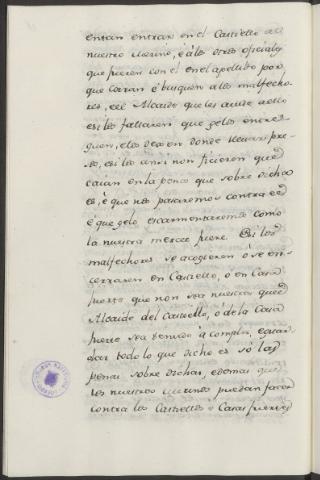 entran entrar en el Castiello
nuestro Merino, é á los otros oficiales
que fueren con el en el apellido por
que corran é busquen a los malfecho
res, é el Alcaide que les ayude a ello
e si los fallaren que gelos entre
guen, e los den en donde llevar pre
so, e si los ansi non ficieren que
caian en la pena que sobre dicha
es, é que nos pararemos contra ed
é que gelo escarmentaremos como
la nuestra merced fuere. E si los
malfechores se acogieren ó se en-
cerraren en Castiello, ó en Casa
fuerte que non sea nuestra qued
Alcaide del Castiello, ó de la Casa
fuerte sea tenudo á complir, e guar
dar todo lo que dicho es só las
penas sobre dichas, e demas que
los nuestros Merinos puedan facer
contra los Castiellos ó Casas fuertes